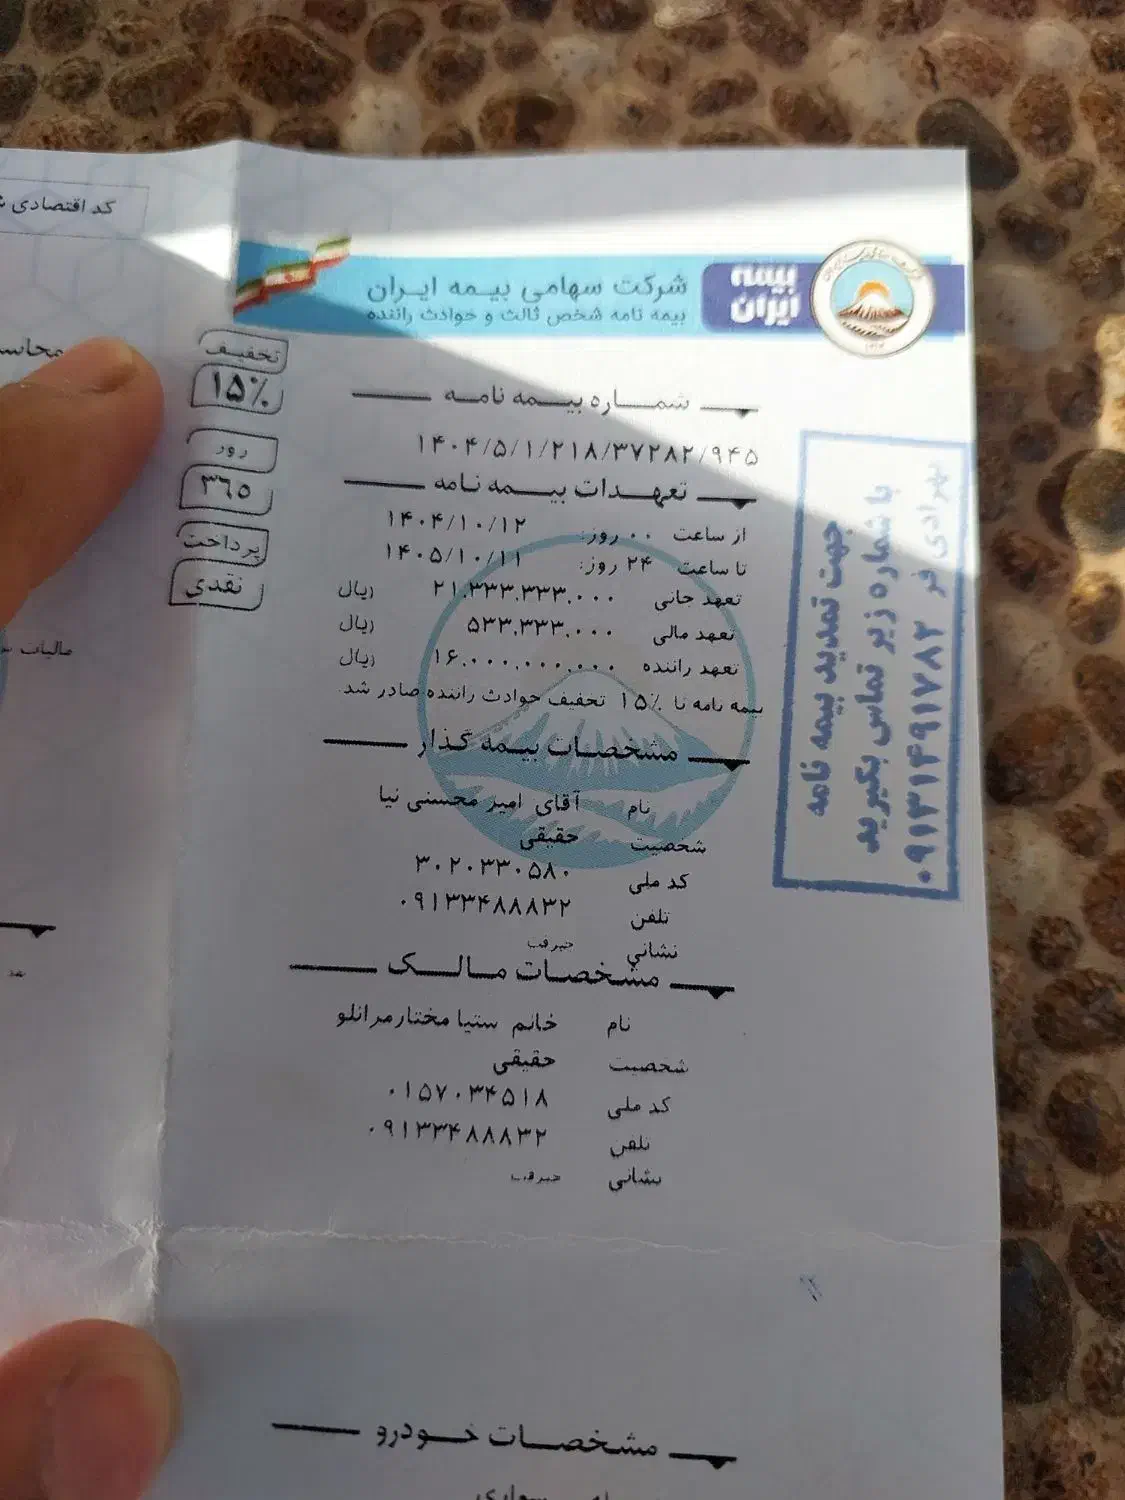 کد اقتصادی
بیمه ایران
شرکت سهامی بیمه ایران
بیمه نامه شخص ثالث و حوادث راننده
تخفیف
۱۵٪
روز
۳۶۵
پرداخت
نقدی
شماره بیمه نامه
۱۴۰۴/۵/۱/۲۱۸/۳۷۲۸۲/۹۴۵
تعهدات بیمه نامه
از ساعت ۰۰ روز: ۱۴۰۴/۱۰/۱۲
تا ساعت ۲۴ روز: ۱۴۰۵/۱۰/۱۱
تعهد جانی ۲۱.۳۳۳.۳۳۳.۰۰۰ ریال
تعهد مالی ۵۳۳.۳۳۳.۰۰۰ ریال
تعهد راننده ۱۶.۰۰۰.۰۰۰.۰۰۰ ریال
بیمه نامه با ۱۵٪ تخفیف حوادث راننده صادر شد
مشخصات بیمه گذار
نام آقای امیر محسنی نیا
شخصیت حقیقی
کد ملی ۳۰۲۰۳۳۰۵۸۰
تلفن ۰۹۱۳۳۴۸۸۸۳۲
نشانی جیرفت
مشخصات مالک
نام خانم ستیا مختارمرانلو
شخصیت حقیقی
کد ملی ۰۱۵۷۰۳۴۵۱۸
تلفن ۰۹۱۳۳۴۸۸۸۳۲
نشانی جیرفت
مشخصات خودرو
سواری
جهت تمدید بیمه نامه
با شماره زیر تماس بگیرید
۰۹۱۳۱۴۹۱۷۸۲ بهزادی فر
مالیات